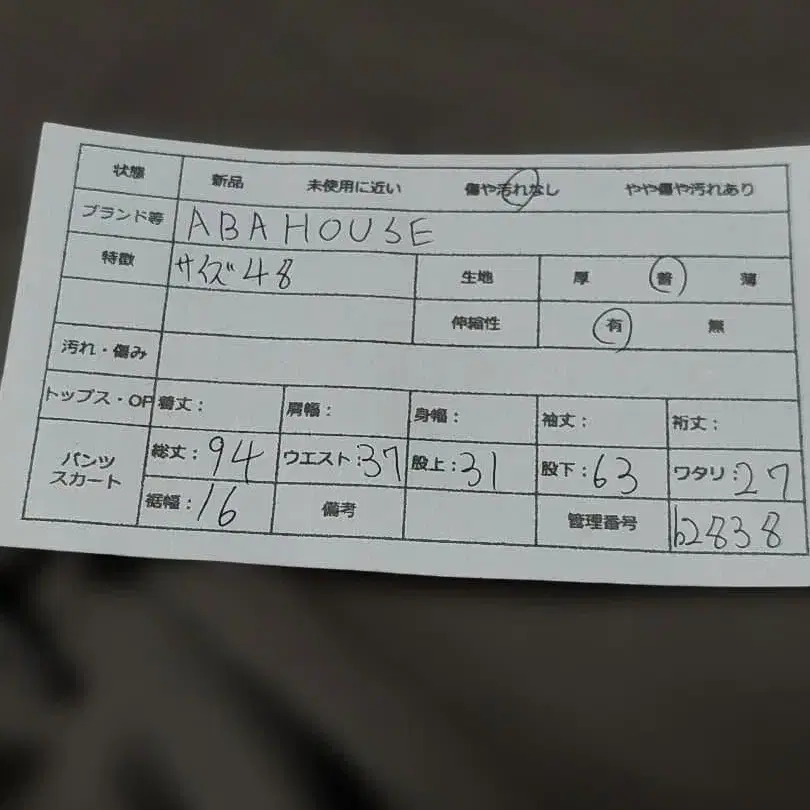 状態 新品 未使用に近い 傷や汚れなし やや傷や汚れあり
ブランド等 ABAHOUSE
特徴 サイズ48 生地 厚 普 薄
伸縮性 有 無
汚れ・傷み
トップス・OP 着丈: 肩幅: 身幅: 袖丈: 裄丈:
パンツ スカート 総丈:94 ウエスト:37 股上:31 股下:63 ワタリ:27
裾幅:16 備考 管理番号 b2838